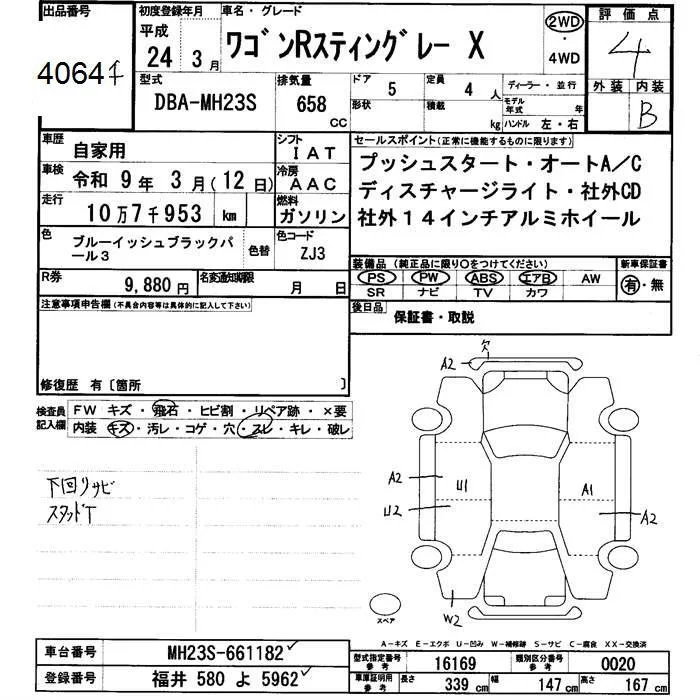 出品番号
40641
初度登録年月
平成
24年 3月
車名・グレード
ワゴンRスティングレー X
2WD
・
4WD
評価点
4
外装 内装
B
型式
DBA-MH23S
排気量
658
CC
ドア 5
形状
定員 4 人
積載 kg
ディーラー・並行
モデル年式 年
ハンドル 左・右
車歴
自家用
シフト
IAT
車検
令和 9年 3月(12日)
冷房
AAC
走行
10万7千953 km
燃料
ガソリン
色
ブルーイッシュブラックパール3
色替
色コード
ZJ3
R券
9,880円
名変通知期限
月 日
セールスポイント(正常に機能するものに限ります)
プッシュスタート・オートA/C
ディスチャージライト・社外CD
社外14インチアルミホイール
装備品 (純正品に限り○をつけてください)
PS PW ABS エアB AW
SR ナビ TV カワ
新車保証書
有・無
後日品
保証書・取説
注意事項申告欄(不具合内容等は具体的に記入して下さい)
修復歴 有〔箇所 〕
検査員
記入欄
FW キズ・飛石・ヒビ割・リペア跡・×要
内装 キズ・汚レ・コゲ・穴・スレ・キレ・破レ
下回りサビ
スタッドT
欠
A2
A2
U1
U2
A1
A2
W2
スペア
A−キズ E−エクボ U−凹み W−補修跡 S−サビ C−腐食 XX−交換済
車台番号
MH23S-661182
登録番号
福井 580 よ 5962
型式指定番号
参考
16169
類別区分番号
参考
0020
車庫証明用
参考
長さ 339 cm
幅 147 cm
高さ 167 cm